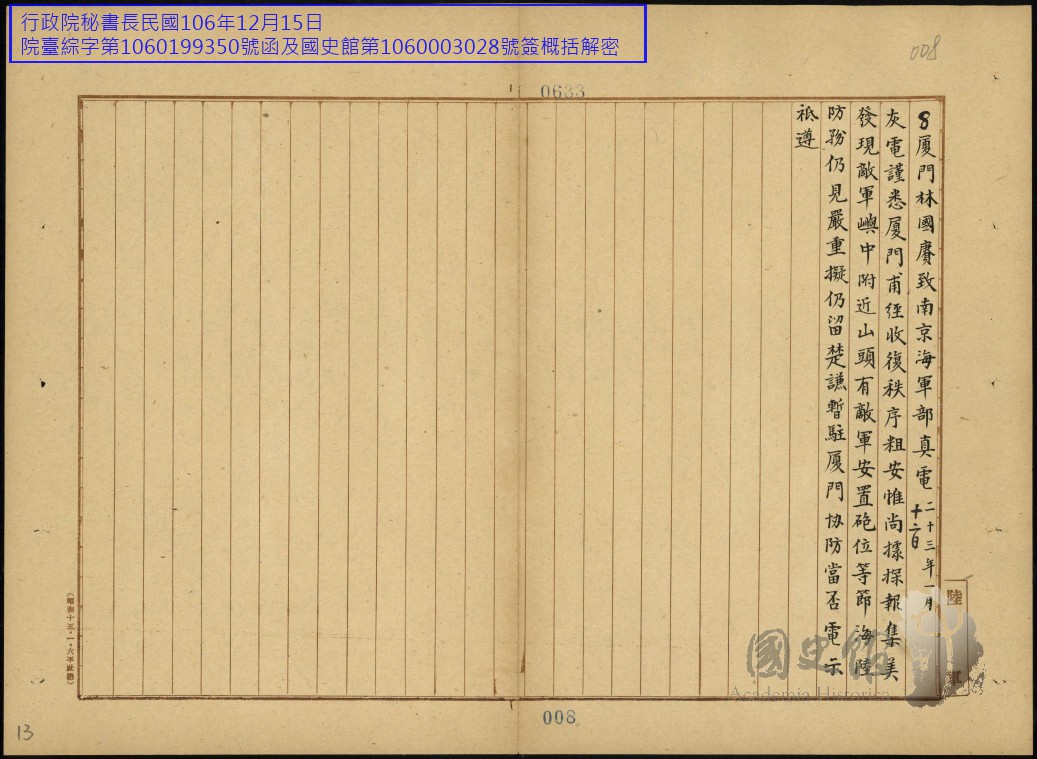 行政院秘書長民國106年12月15日
院臺綜字第1060199350號函及國史館第1060003028號簽概括解密
008
0633
8厦門林國賡致南京海軍部真電 二十三年一月十二日
灰電謹悉厦門甫經收復秩序粗安惟尚據探報集美
發現敵軍嶼中附近山頭有敵軍安置砲位等節海陸
防務仍見嚴重擬仍留楚謙暫駐厦門協防當否電示
祗遵
陸
軍
國史館
Academia Historica
008
13